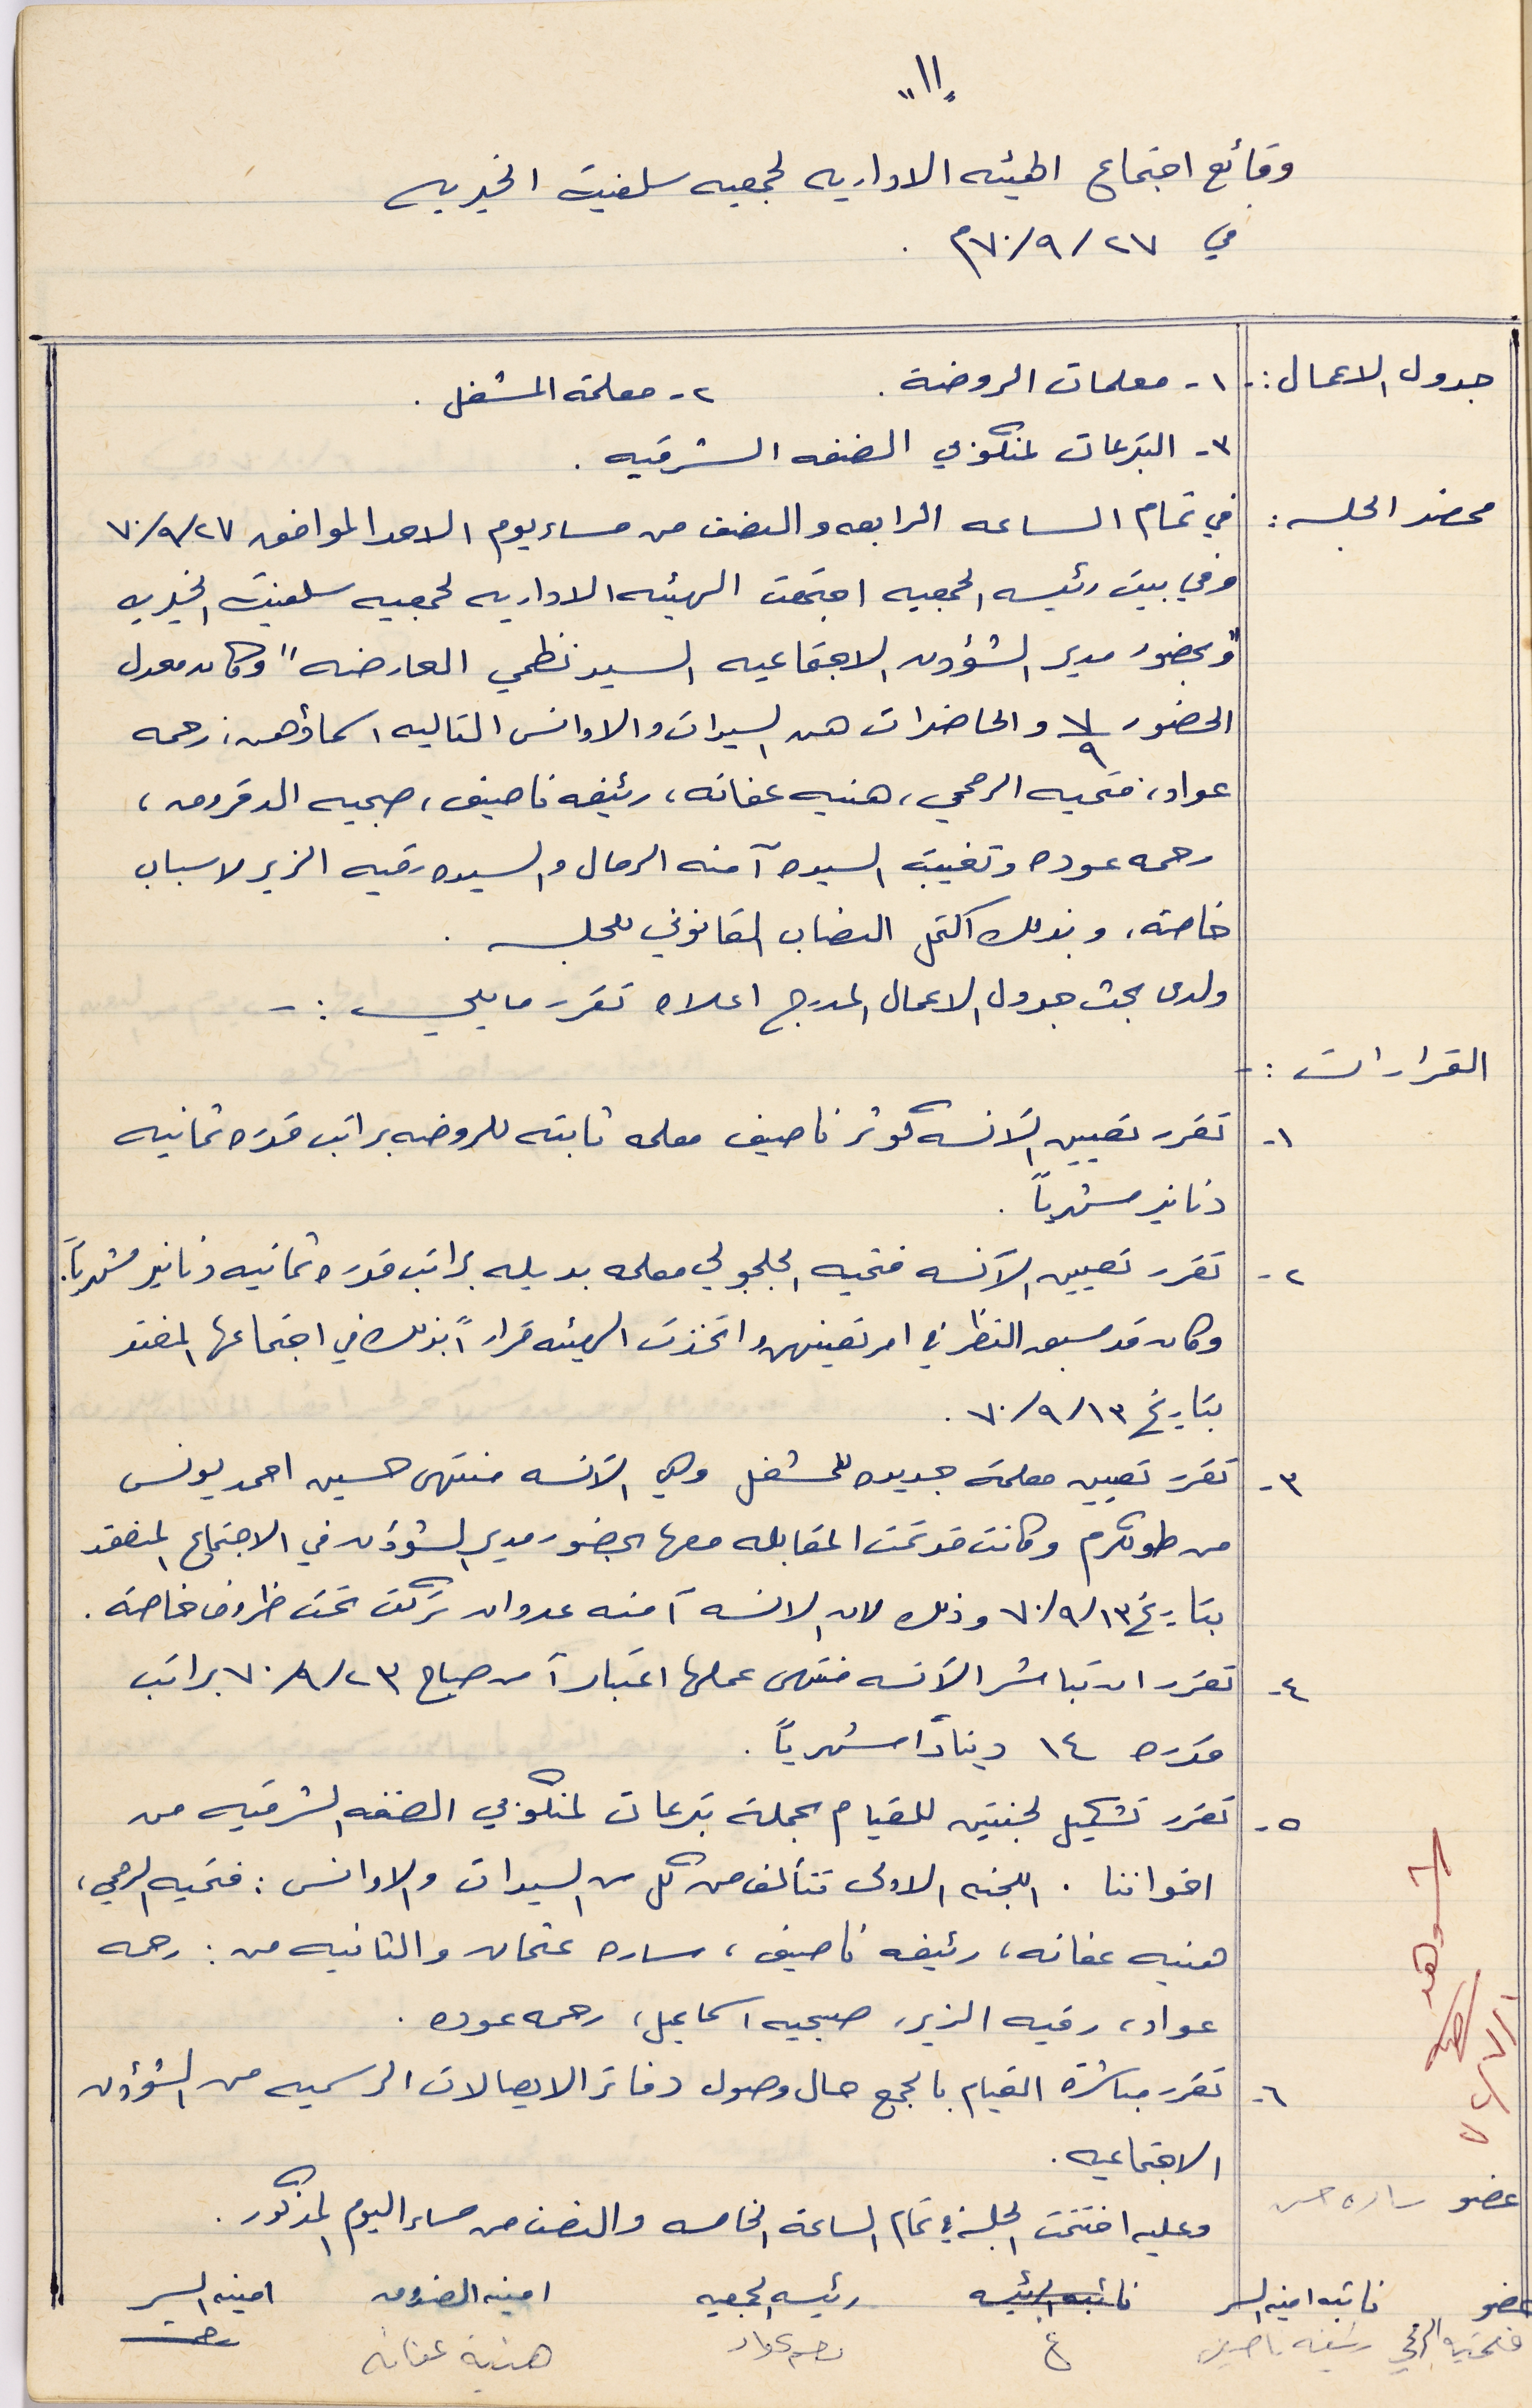 "١١"
وقائع اجتماع الهيئه الاداريه لجمعيه سلفيت الخيريه
في ٢٧/٩/٧٠م .
جدول الاعمال :- ١- معلمات الروضة . ٢- معلمة المشغل .
٣- التبرعات لمنكوبي الضفه الشرقيه .
محضر الجلسه : في تمام الساعه الرابعه والنصف من مساء يوم الاحد الموافق ٢٧/٩/٧٠
وفي بيت رئيسه الجمعيه اجتمعت الهيئه الاداريه لجمعيه سلفيت الخيريه
"وبحضور مدير الشؤون الاجتماعيه السيد نظمي العارضه" وكان معدل
الحضور ٧/٩ والحاضرات هن السيدات والاوانس التاليه اسماؤهن: رحمه
عواد، فتحيه الرمحي، هنيه عفانه، رئيفه ناصيف، صبحيه الدقروق،
رحمه عوده وتغيبت السيده آمنه الرمال والسيده رقيه الزير لاسباب
خاصة، وبذلك اكتمل النصاب القانوني للجلسه .
ولدى بحث جدول الاعمال المدرج اعلاه تقرر ما يلي :-
القرارات :-
١- تقرر تعيين الآنسه كوثر ناصيف معلمه ثابته للروضه براتب قدره ثمانيه
دنانير شهرياً .
٢- تقرر تعيين الآنسه فتحيه الجلجولي معلمه بديله براتب قدره ثمانيه دنانير شهرياً.
وكان قد سبق النظر في امر تعيينهن واتخذت الهيئه قراراً بذلك في اجتماعها المنعقد
بتاريخ ١٣/٩/٧٠ .
٣- تقرر تعيين معلمة جديده للمشغل وهي الآنسه منتهى حسين احمد يونس
من طولكرم وكانت قد تمت المقابله معها بحضور مدير الشؤون في الاجتماع المنعقد
بتاريخ ١٣/٩/٧٠ وذلك لان الانسه آمنه عدوان تركت تحت ظروف خاصة .
٤- تقرر ان تباشر الآنسه منتهى عملها اعتباراً من صباح ٢٣/٩/٧٠ براتب
قدره ١٤ ديناراً شهرياً .
٥- تقرر تشكيل لجنتين للقيام بحملة تبرعات لمنكوبي الضفه الشرقيه من
اخواننا . اللجنه الاولى تتألف من كل من السيدات والاوانس : فتحيه الرمحي،
هنيه عفانه، رئيفه ناصيف، ساره عثمان والثانيه من : رحمه
عواد، رقيه الزير، صبحيه اسماعيل، رحمه عوده .
٦- تقرر مباشرة القيام بالجمع حال وصول دفاتر الايصالات الرسميه من الشؤون
الاجتماعيه .
وعليه اختتمت الجلسة في تمام الساعة الخامسه والنصف من مساء اليوم المذكور .
شوهد
عضو ساره حسن
عضو نائبه امينه السر نائبه الرئيسه رئيسه الجمعيه امينه الصندوق امينه السر
فتحيه الرمحي رئيفه ناصيف رحمه عواد هنية عفانه رحمه